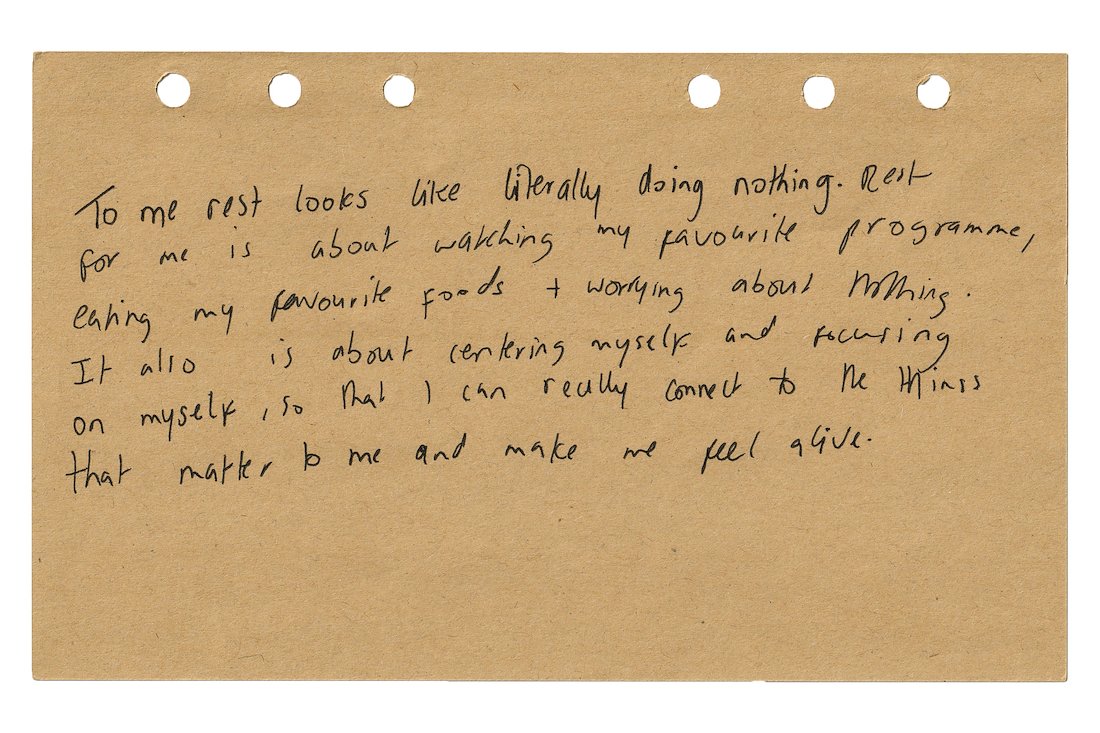 To me rest looks like literally doing nothing. Rest
for me is about watching my favourite programme,
eating my favourite foods + worrying about nothing.
It also is about centering myself and focusing
on myself, so that I can really connect to the things
that matter to me and make me feel alive.